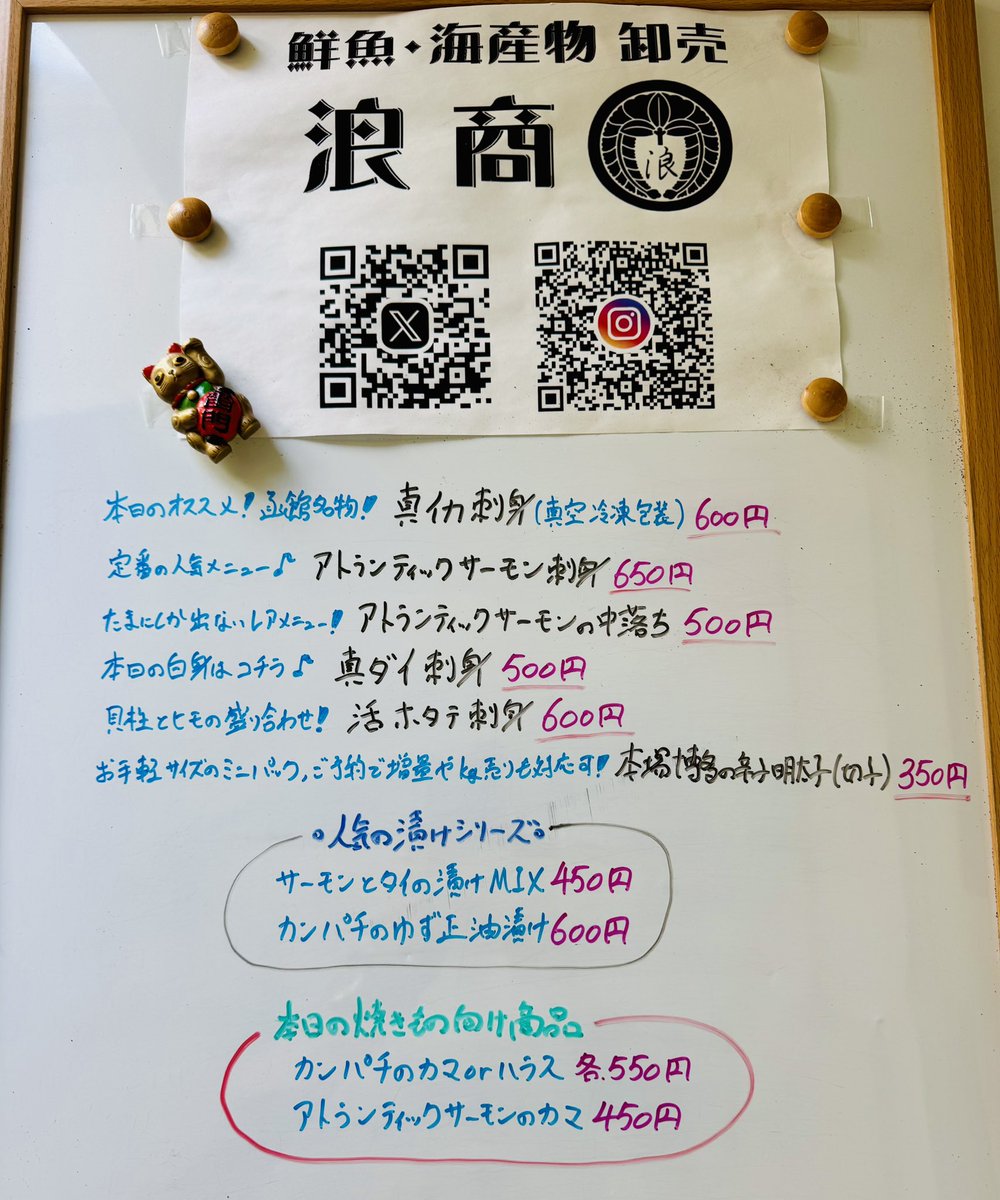 鮮魚・海産物 卸売
浪商
浪
本日のオススメ!函館名物! 真イカ刺身(真空冷凍包装) 600円
定番の人気メニュー♪ アトランティックサーモン刺身 650円
たまにしか出ないレアメニュー! アトランティックサーモンの中落ち 500円
本日の白身はコチラ♪ 真ダイ刺身 500円
貝柱とヒモの盛り合わせ! 活ホタテ刺身 600円
お手軽サイズのミニパック、ご予約で増量やkg売りも対応可! 本場博多の辛子明太子(切子) 350円
人気の漬けシリーズ
サーモンとタイの漬けMIX 450円
カンパチのゆず正油漬け 600円
本日の焼きもの向け商品
カンパチのカマorハラス 各550円
アトランティックサーモンのカマ 450円